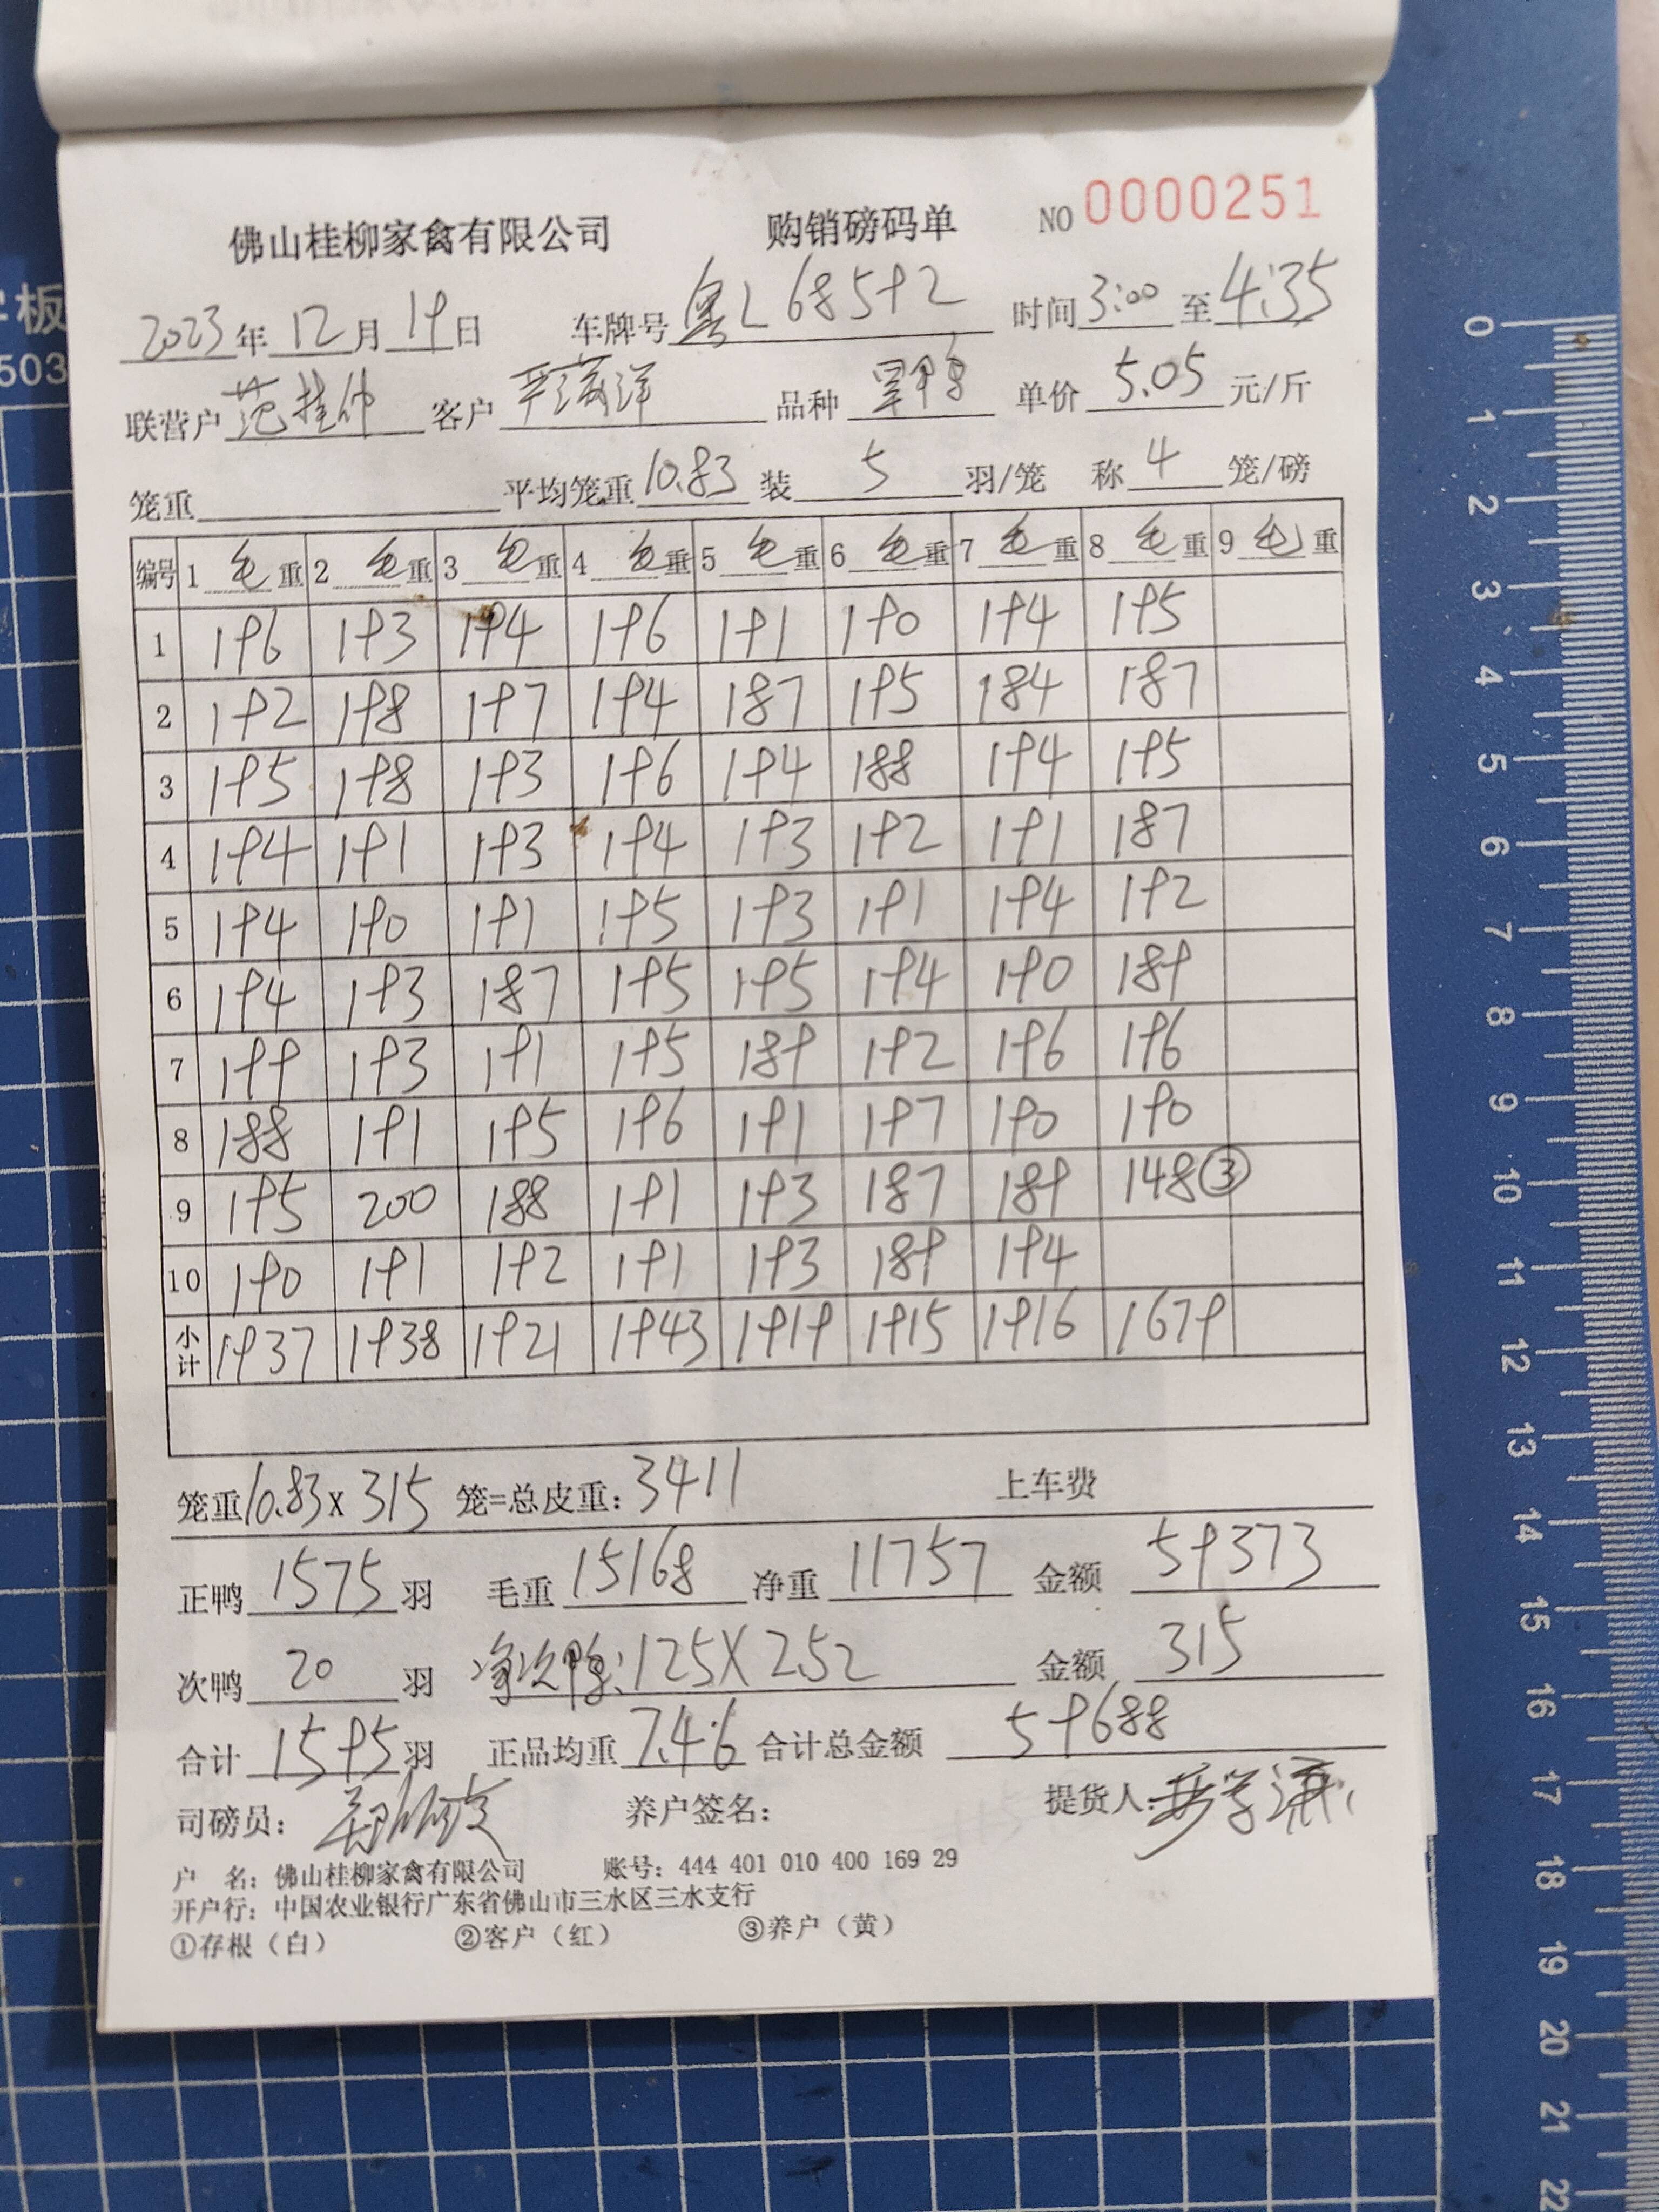 字板
503
佛山桂柳家禽有限公司 购销磅码单 NO 0000251
2023年12月19日 车牌号 粤L68592 时间 3:00 至 4:35
联营户 范桂仲 客户 严满洋 品种 单价 5.05 元/斤
笼重 平均笼重 10.83 装 5 羽/笼 称 4 笼/磅
编号 1 毛重 2 毛重 3 毛重 4 毛重 5 毛重 6 毛重 7 毛重 8 毛重 9 毛重
1 196 193 194 196 191 190 194 195
2 192 198 197 194 187 195 184 187
3 195 198 193 196 194 188 194 195
4 194 191 193 194 193 192 191 187
5 194 190 191 195 193 191 194 192
6 194 193 187 195 195 194 190 189
7 199 193 191 195 189 192 196 196
8 188 191 195 196 191 197 190 190
9 195 200 188 191 193 187 189 148③
10 190 191 192 191 193 189 194
小计 1937 1938 1921 1943 1919 1915 1916 1679
笼重 10.83 x 315 笼=总皮重: 3411 上车费
正鸭 1575 羽 毛重 15168 净重 11757 金额 59373
次鸭 20 羽 净次鸭: 125X2.52 金额 315
合计 1595 羽 正品均重 7.46 合计总金额 59688
司磅员: 养户签名: 提货人:
户 名: 佛山桂柳家禽有限公司 账号: 444 401 010 400 169 29
开户行: 中国农业银行广东省佛山市三水区三水支行
①存根(白) ②客户(红) ③养户(黄)
0
1
2
3
4
5
6
7
8
9
10
11
12
13
14
15
16
17
18
19
20
21
22